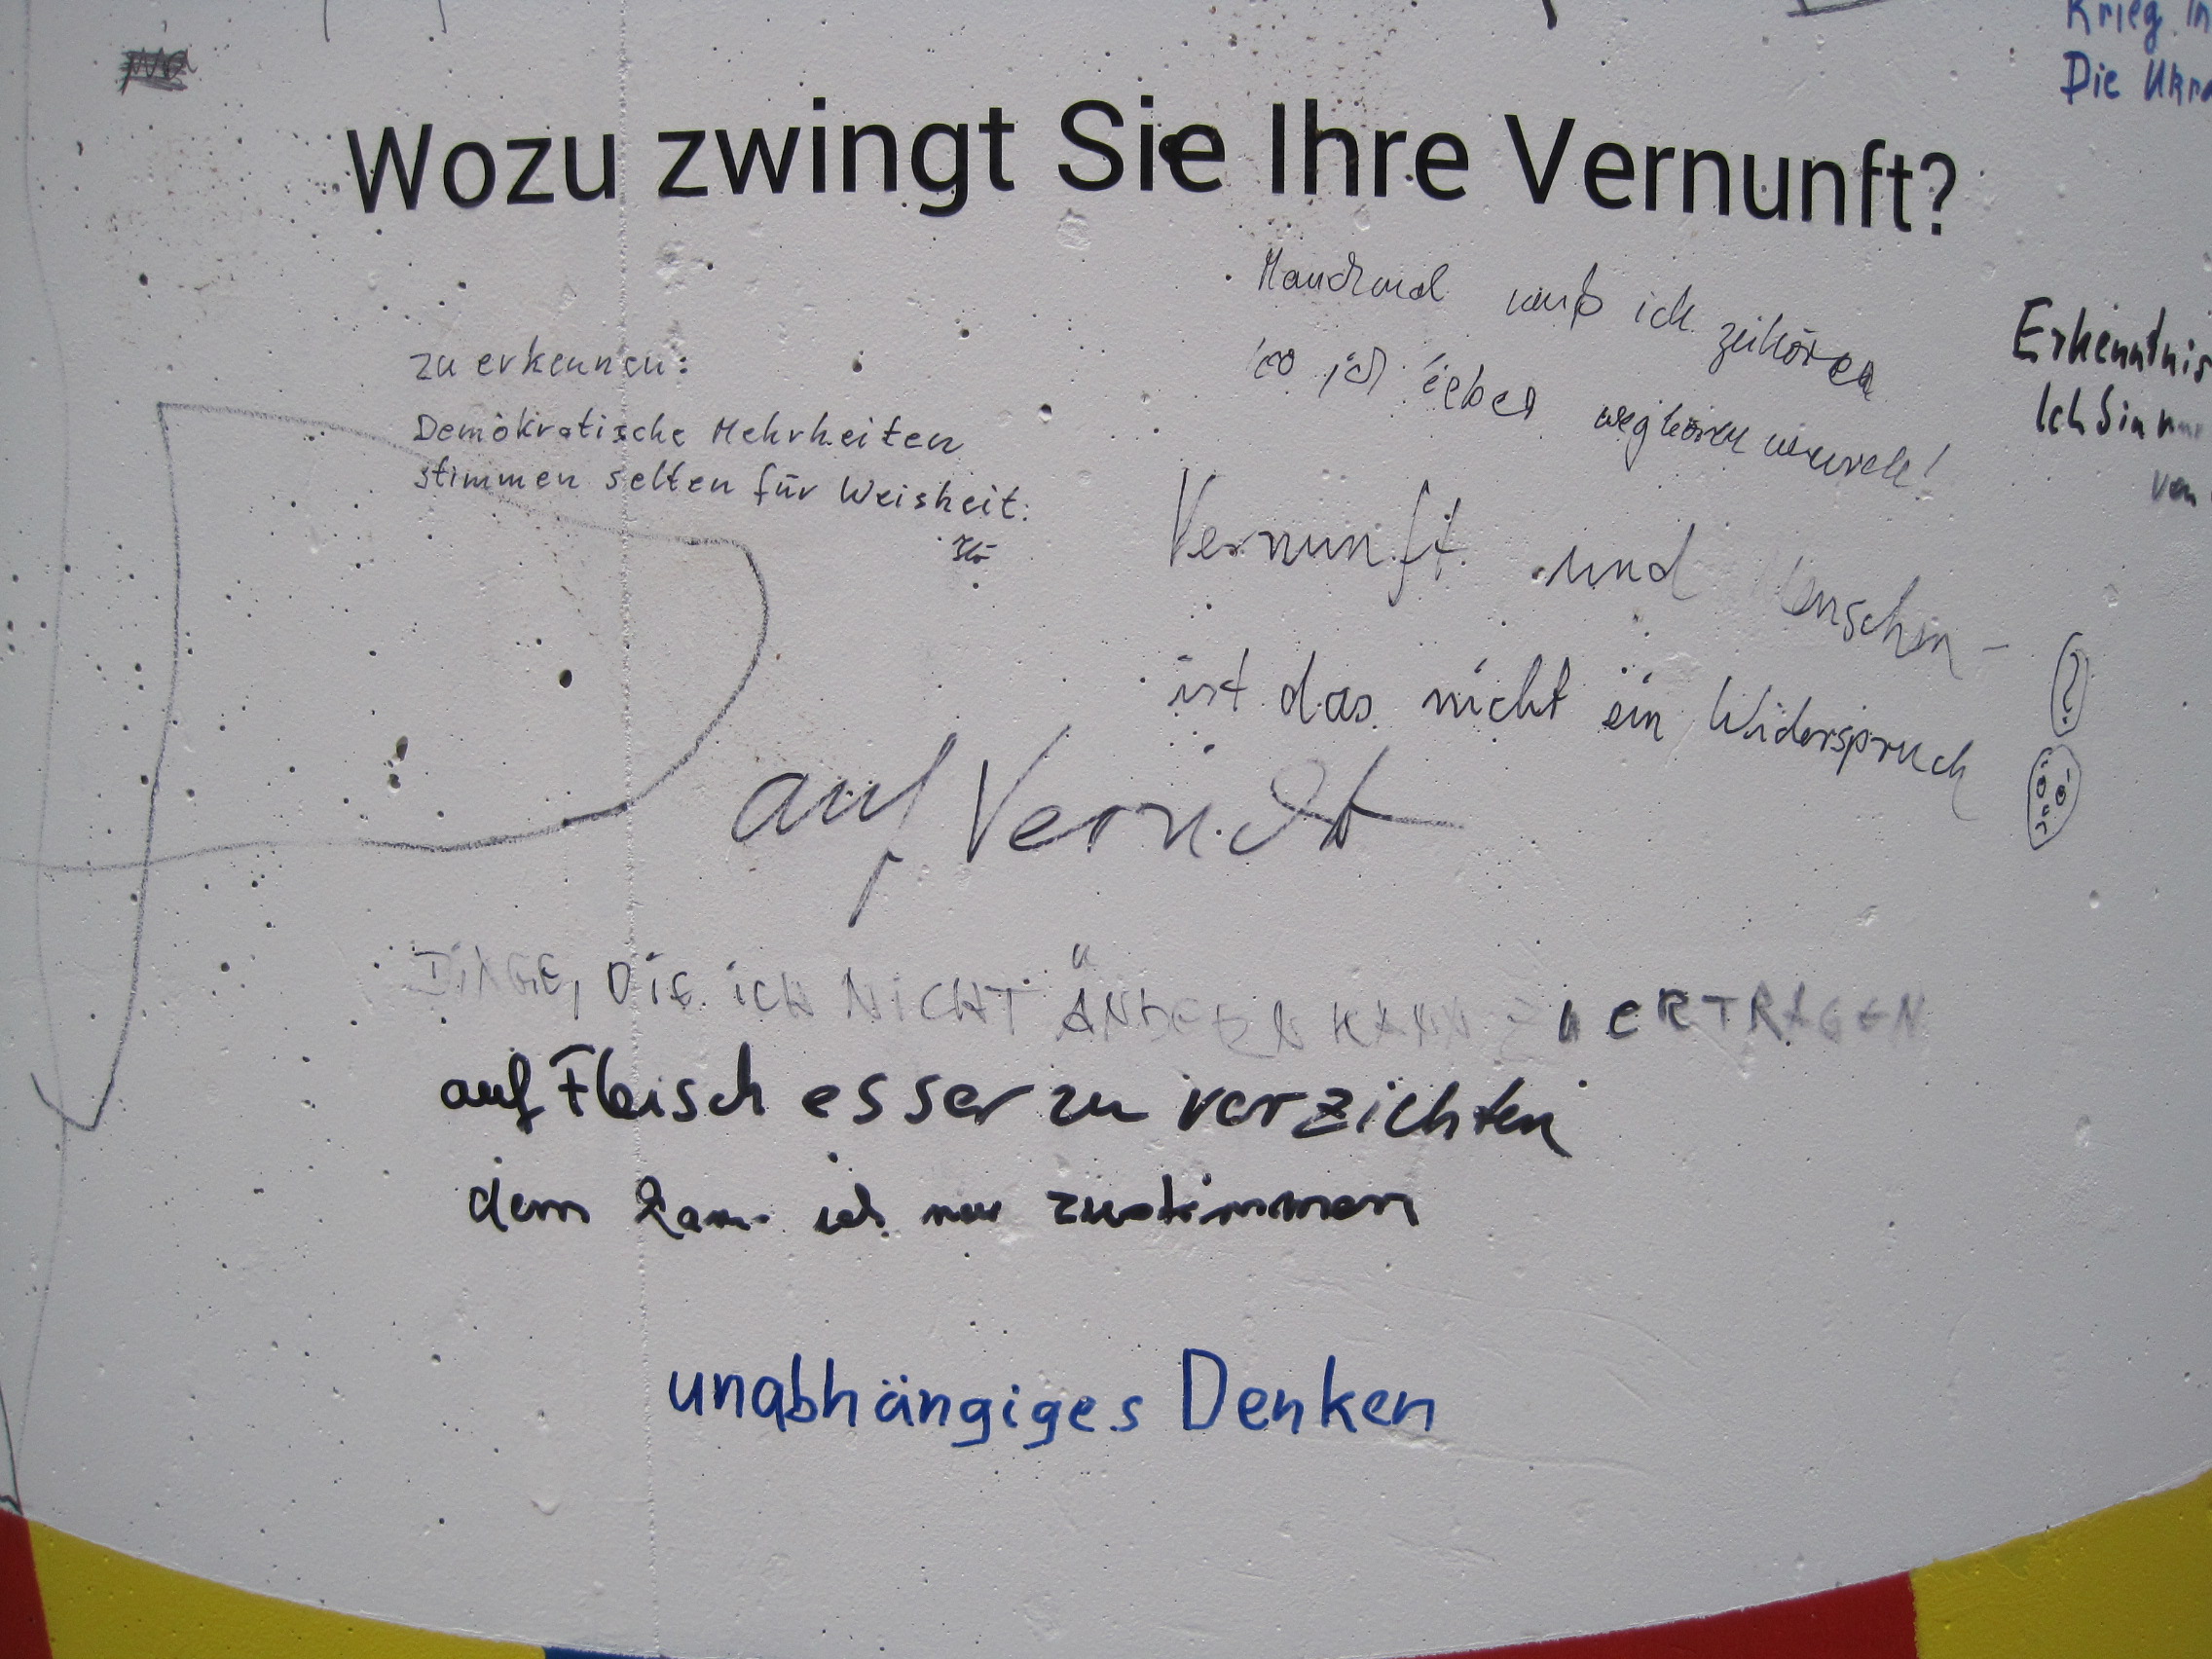 Krieg in
Die Ukra
Wozu zwingt Sie Ihre Vernunft?
zu erkennen:
Demokratische Mehrheiten
stimmen selten für Weisheit.
Manchmal muß ich zuhören
wo ich lieber weghören würde!
Erkenntnis
Ich bin nur
von
Vernunft und Menschen –
ist das nicht ein Widerspruch ?
auf
DINGE, DIE ICH NICHT ÄNDERN KANN ZU ERTRAGEN
auf Fleisch esser zu verzichten
dem kann ich nur zustimmen
unabhängiges Denken